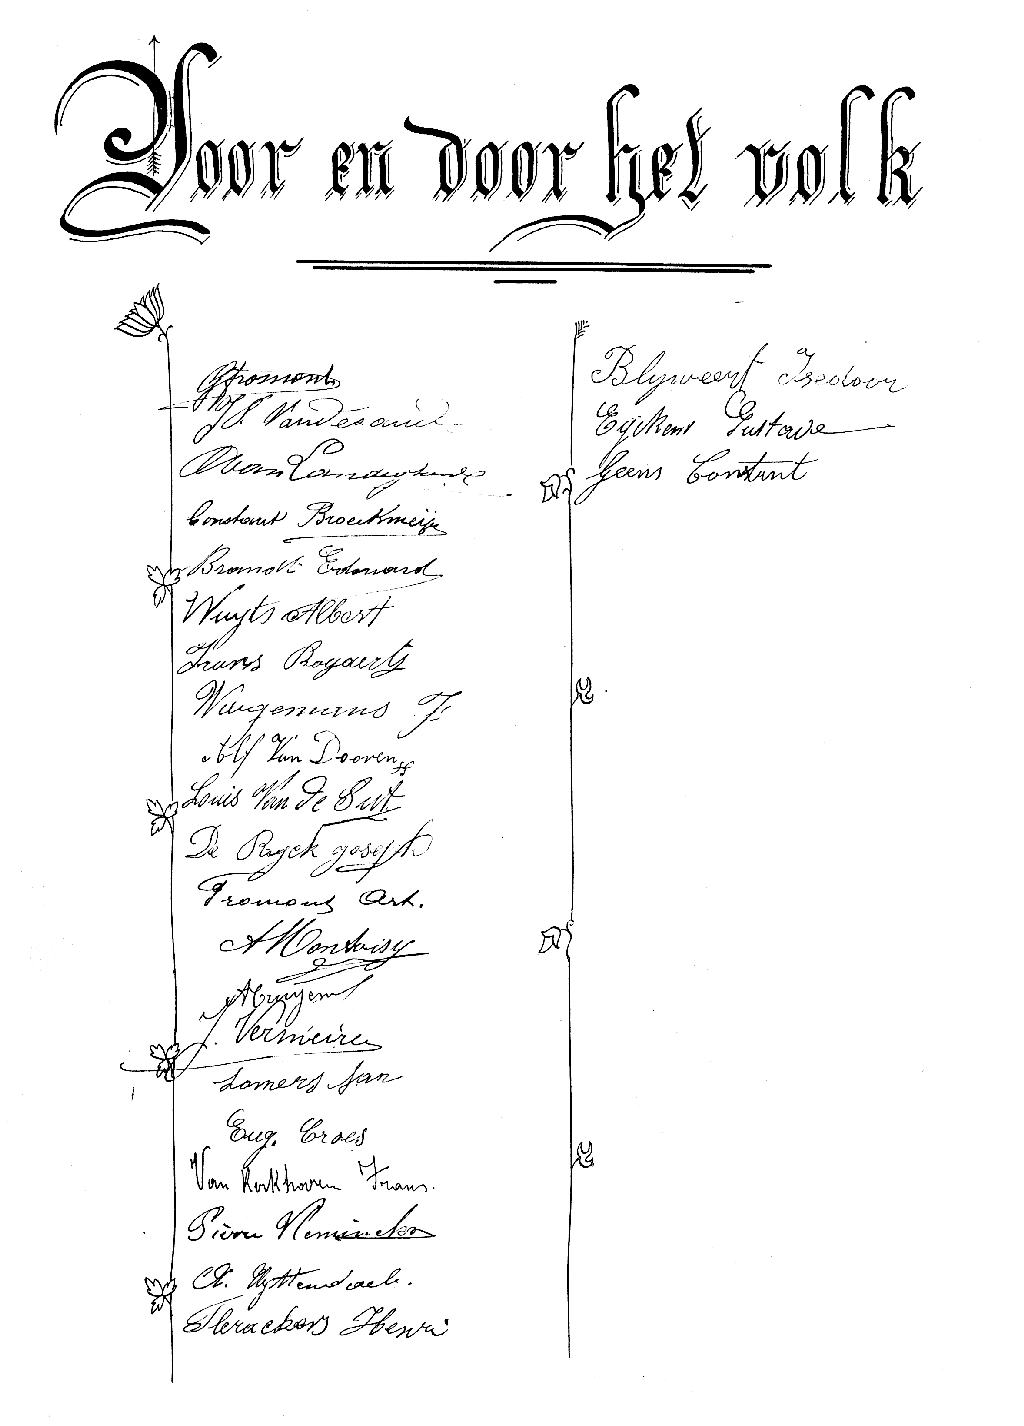 Voor en door het volk
Fromont
Van
Constant Broeckmeije
Brandt Edouard
Wuyts Albert
Frans Bogaerts
F
Alf Van Dooren
Louis Van de Sut
De Ryck Joseph
Fromont Art.
A Montoisy
J. Vermeiren
Somers Jan
Eug. Croes
Van Kerkhoven Frans.
Pierre
A. Uyttendaele.
Flerackers Henri
Blyweert Isedoor
Eyckens Gustave
Geens Constant